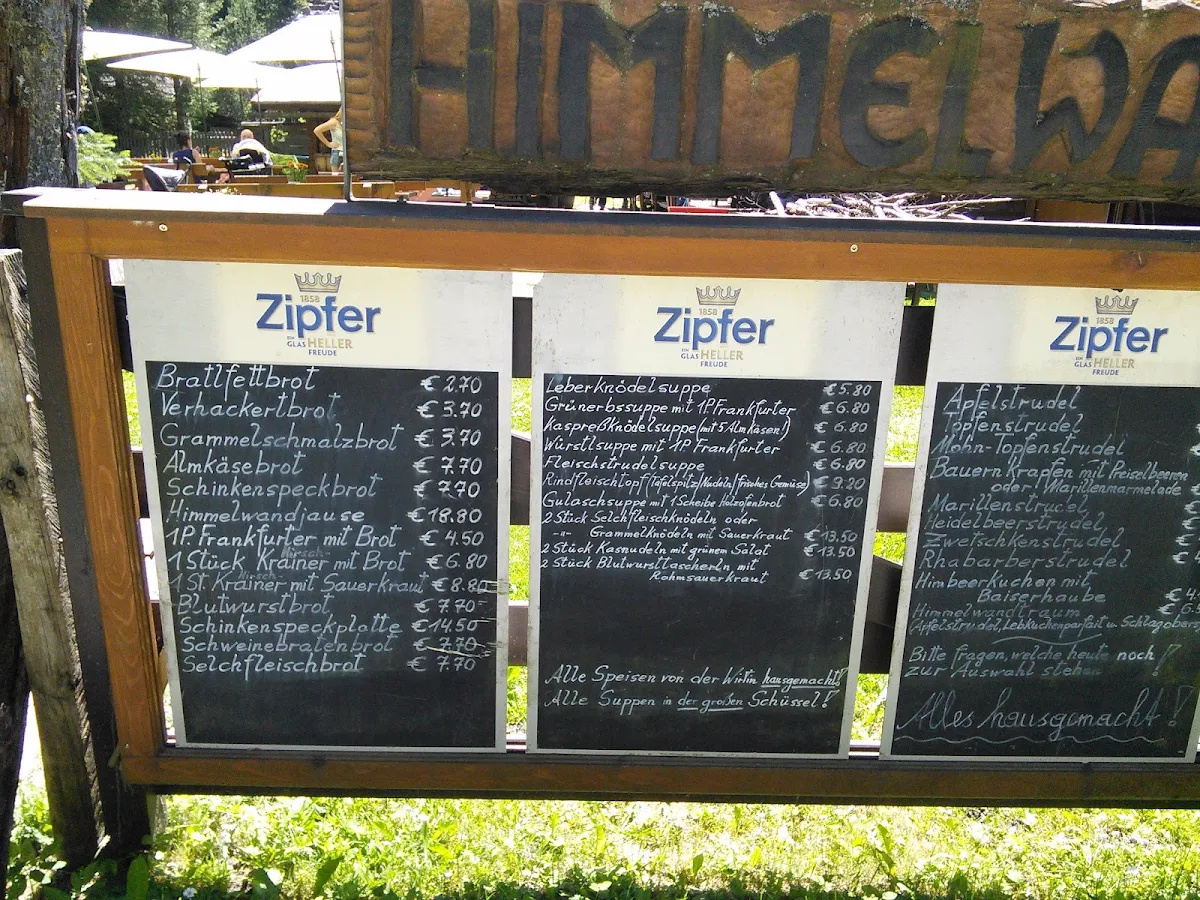 HIMMELWA
1858
Zipfer
EIN
GLAS HELLER
FREUDE
Bratlfettbrot € 2.70
Verhackertbrot € 3.70
Grammelschmalzbrot € 3.70
Almkäsebrot € 7.70
Schinkenspeckbrot € 7.70
Himmelwandjause € 18.80
1P Frankfurter mit Brot € 4.50
Hirsch-
1 Stück Krainer mit Brot € 6.80
Hirsch-
1 St. Krainer mit Sauerkraut € 8.80
Blutwurstbrot € 7.70
Schinkenspeckplatte € 14.50
Schweinebratenbrot € 7.70
Selchfleischbrot € 7.70
1858
Zipfer
EIN
GLAS HELLER
FREUDE
Leberknödelsuppe € 5.80
Grünerbssuppe mit 1P Frankfurter € 6.80
Kaspreßknödelsuppe (mit 5 Almkäsen!) € 6.80
Würstlsuppe mit 1P Frankfurter € 6.80
Fleischstrudelsuppe € 6.80
Rindfleischtopf (Tafelspitz/Nudeln/frisches Gemüse) € 9.20
Gulaschsuppe mit 1 Scheibe Holzofenbrot € 6.80
2 Stück Selchfleischknödeln oder
-"- Grammelknödeln mit Sauerkraut € 13.50
2 Stück Kasnudeln mit grünem Salat € 13.50
2 Stück Blutwursttascherln mit
Rahmsauerkraut € 13.50
Alle Speisen von der Wirtin hausgemacht!
Alle Suppen in der großen Schüssel!
1858
Zipfer
EIN
GLAS HELLER
FREUDE
Apfelstrudel
Topfenstrudel
Mohn-Topfenstrudel €
Bauernkrapfen mit Preiselbeeren
oder Marillenmarmelade €
Marillenstrudel €
Heidelbeerstrudel €
Zwetschkenstrudel €
Rhabarberstrudel €
Himbeerkuchen mit
Baiserhaube € 4.
Himmelwandtraum € 6.
Apfelstrudel, Lebkuchenparfait u. Schlagobers
Bitte fragen, welche heute noch
zur Auswahl stehen!
Alles hausgemacht!